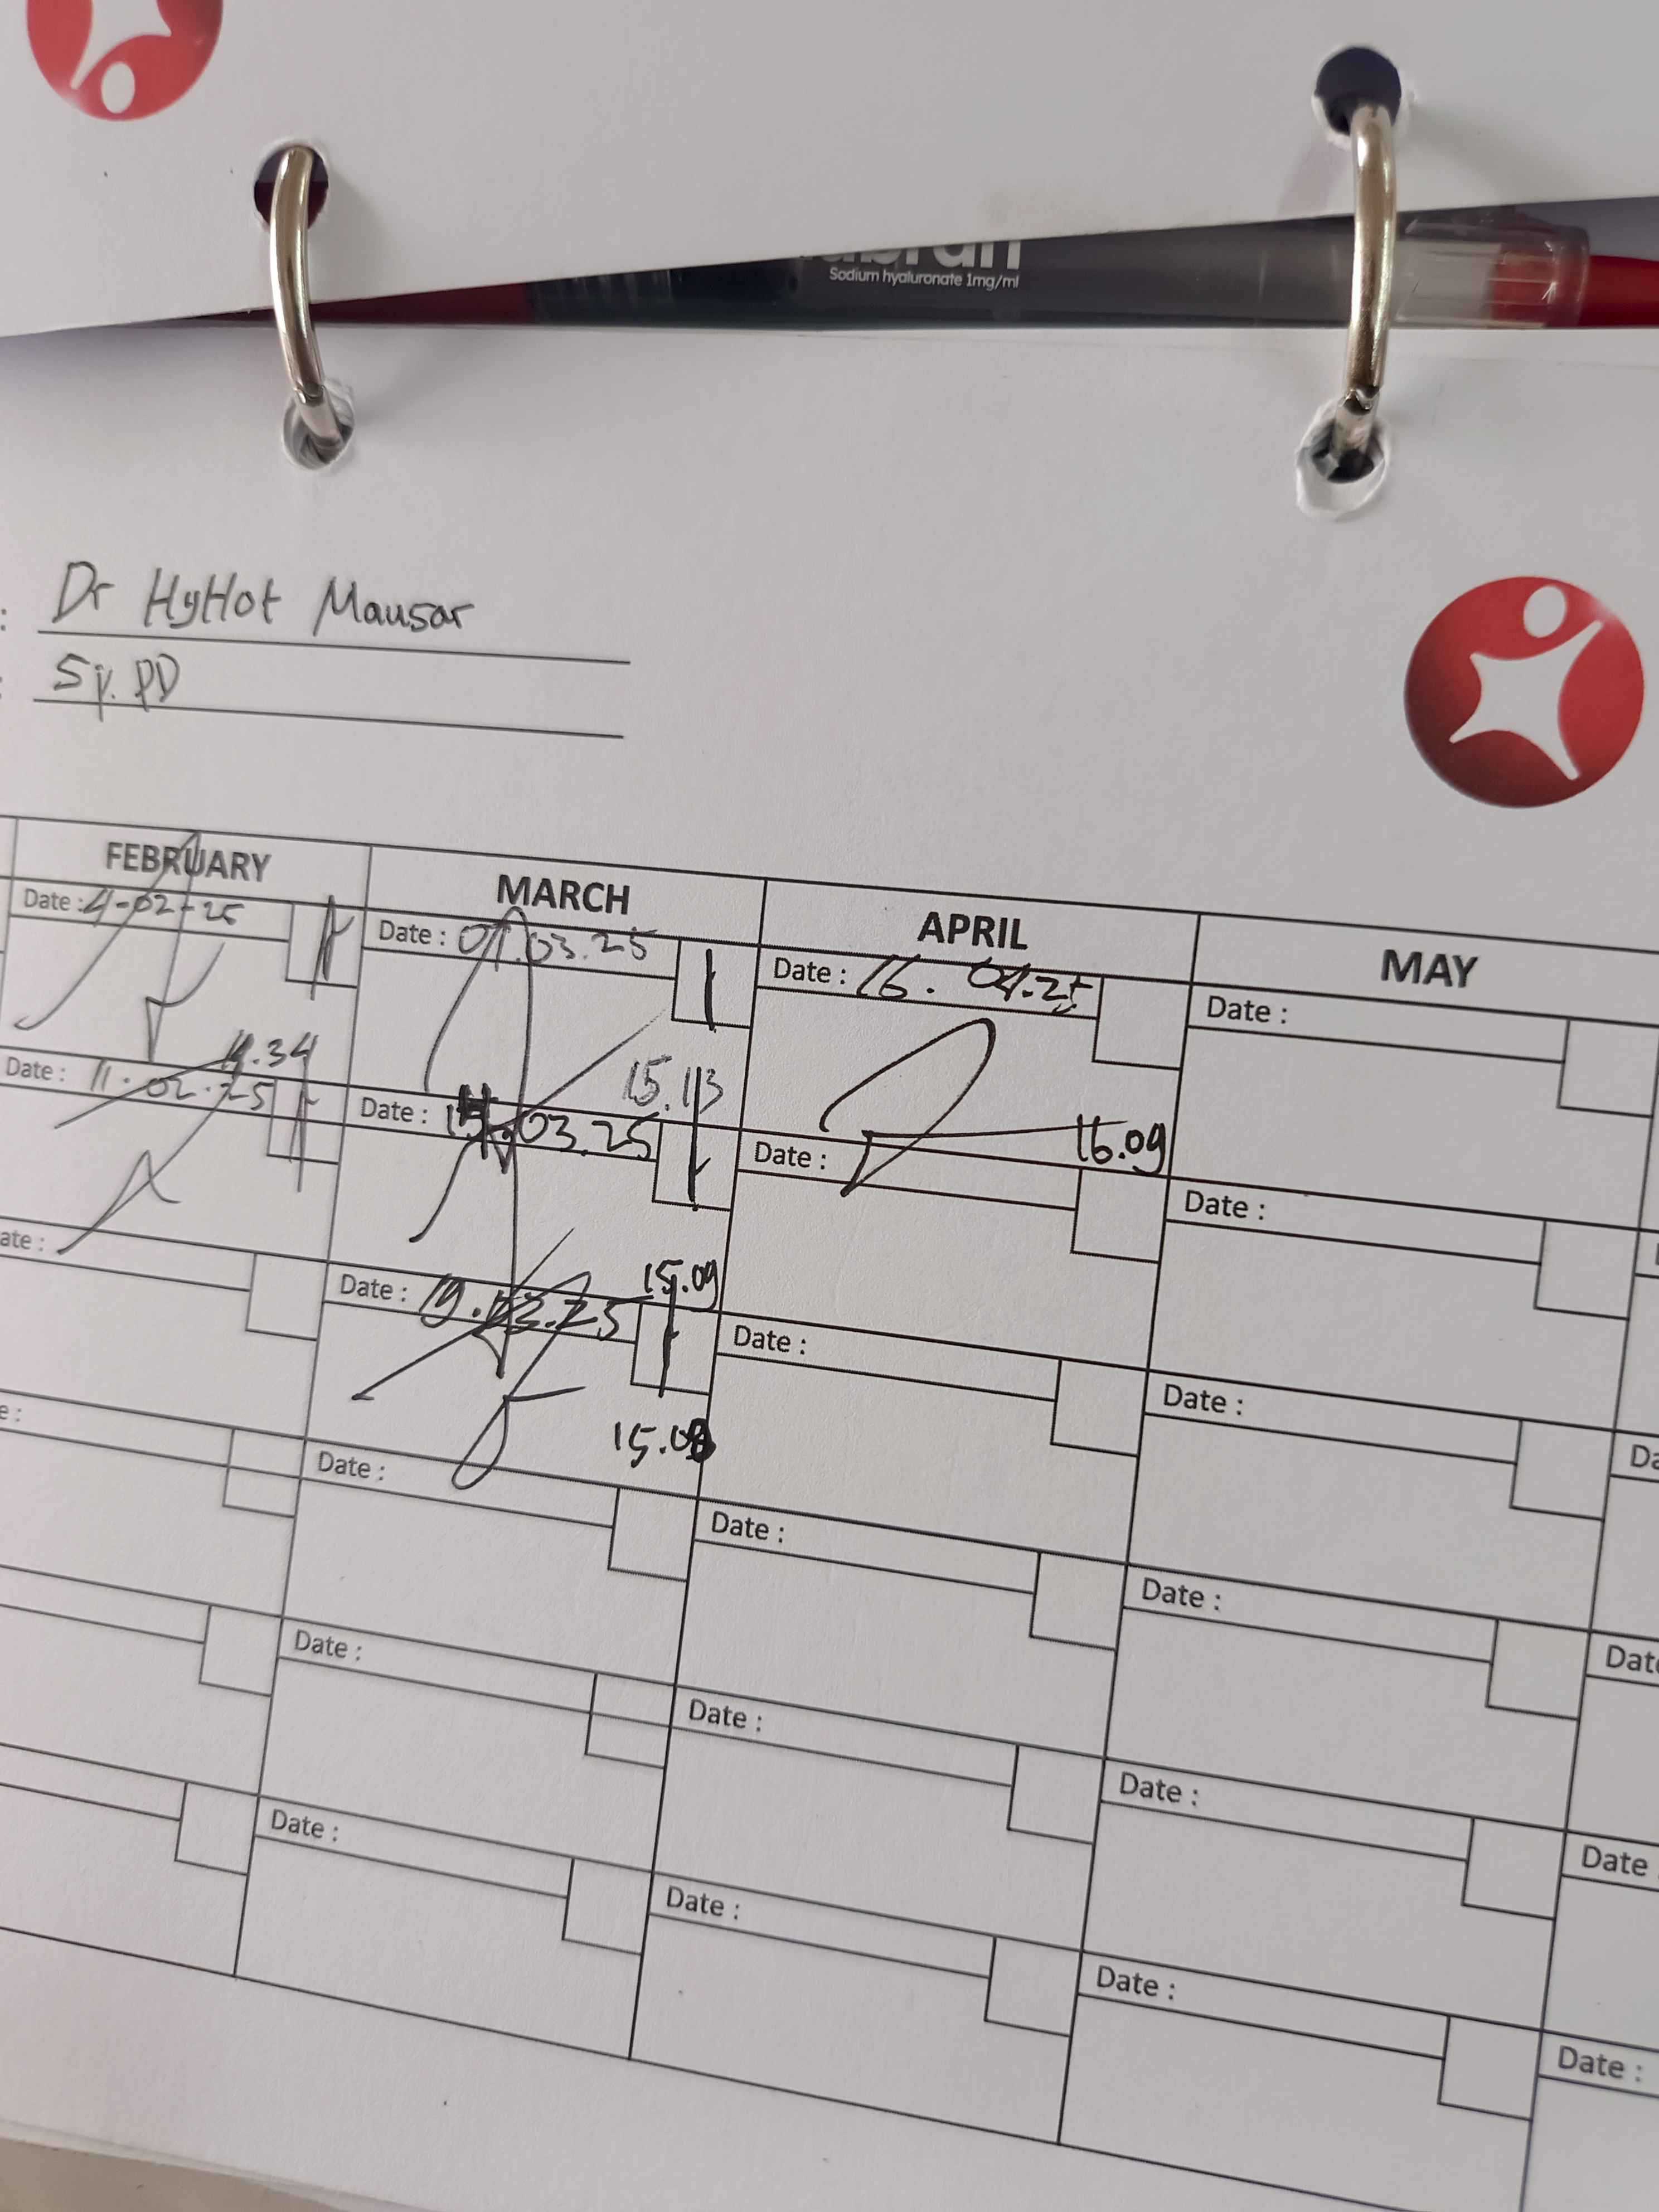 Sodium hyaluronate 1mg/ml
: Dr HyHot Mausar
: Sp. PD
FEBRUARY MARCH APRIL MAY
Date : 4-02-25
Date : 03.25
Date : 16. 04.25
Date :
11.34
15.13
Date : 11.02.25
Date : 03.25
16.09
Date :
Date :
15.09
ate :
Date : 19.03.25
Date :
Date :
15.08
e :
Date :
Date :
Date :
Da
Date :
Date :
Date :
Date
Date :
Date :
Date :
Date
Date :